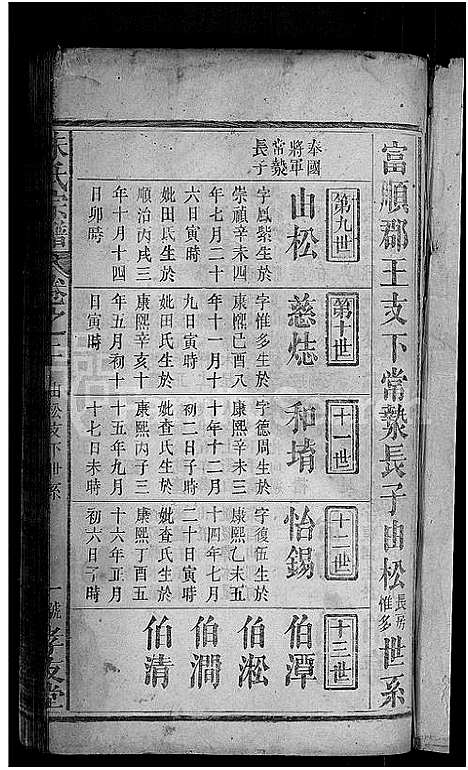 富順郡王支下常𤍠長子由松長房惟多世系
第九世
奉國將軍常𤍠長子
由松
字鳳紫生於
崇禎辛未四
年七月二十
六日寅時
妣田氏生於
順治丙戌三
年十月十四
日卯時
第十世
慈㷂
字惟多生於
康熙己酉八
年十一月十
九日寅時
妣田氏生於
康熙辛亥十
年五月初十
日寅時
十一世
和堉
字德周生於
康熙辛未三
十年十二月
初二日子時
妣查氏生於
康熙丙子三
十五年九月
十七日未時
十二世
怡錫
字復伍生於
康熙乙未五
十四年七月
二十日寅時
妣查氏生於
康熙丁酉五
十六年正月
初六日子時
十三世
伯潭
伯淞
伯澗
伯清
朱氏宗譜
卷之
由松支下世系
一號
孝友堂